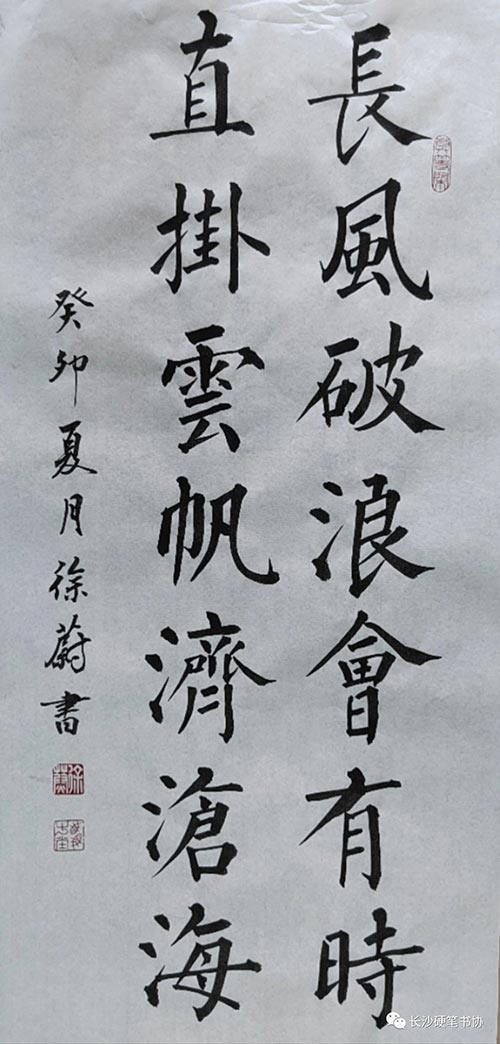 長風破浪會有時
直掛雲帆濟滄海
癸卯夏月徐蔚書
长沙硬笔书协